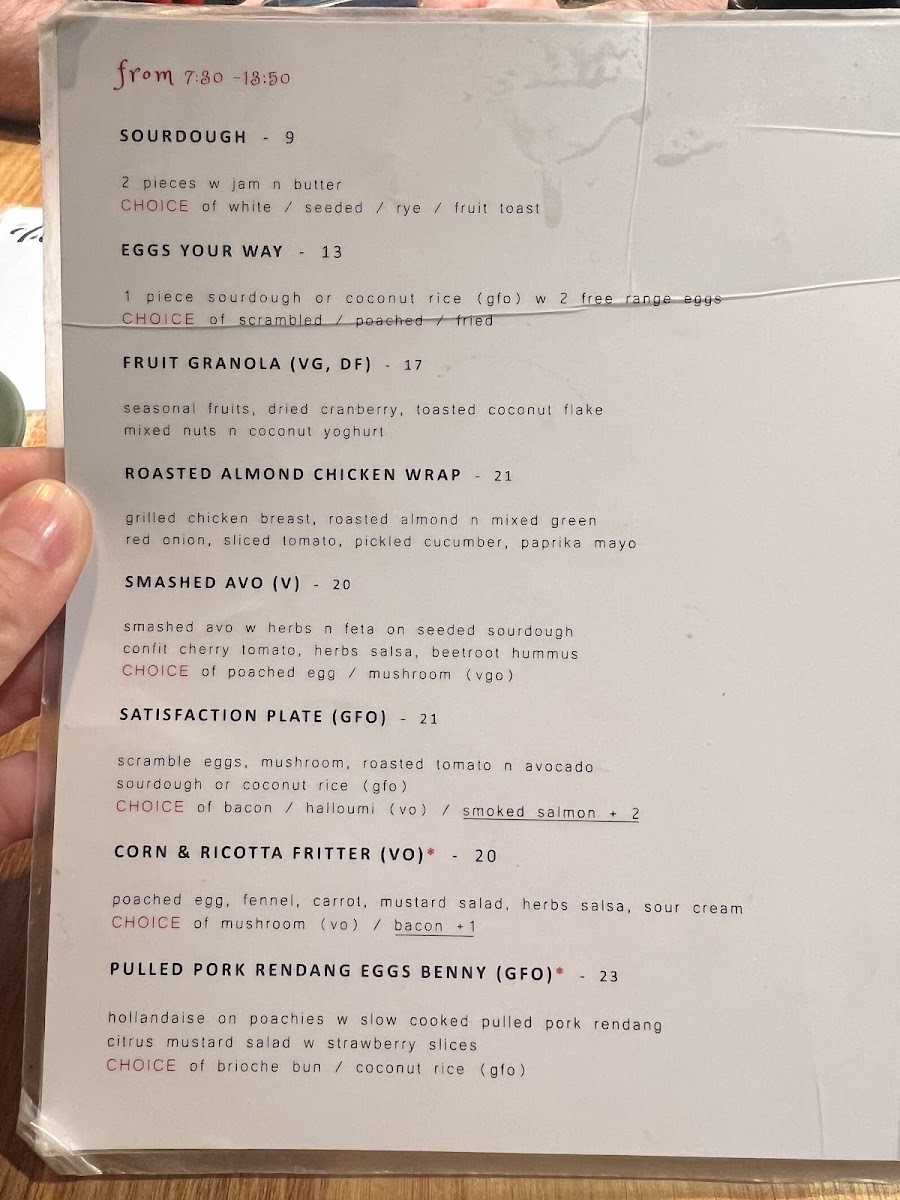 from 7:30 -13:50
SOURDOUGH - 9
2 pieces w jam n butter
CHOICE of white / seeded / rye / fruit toast
EGGS YOUR WAY - 13
1 piece sourdough or coconut rice (gfo) w 2 free range eggs
CHOICE of scrambled / poached / fried
FRUIT GRANOLA (VG, DF) - 17
seasonal fruits, dried cranberry, toasted coconut flake
mixed nuts n coconut yoghurt
ROASTED ALMOND CHICKEN WRAP - 21
grilled chicken breast, roasted almond n mixed green
red onion, sliced tomato, pickled cucumber, paprika mayo
SMASHED AVO (V) - 20
smashed avo w herbs n feta on seeded sourdough
confit cherry tomato, herbs salsa, beetroot hummus
CHOICE of poached egg / mushroom (vgo)
SATISFACTION PLATE (GFO) - 21
scramble eggs, mushroom, roasted tomato n avocado
sourdough or coconut rice (gfo)
CHOICE of bacon / halloumi (vo) / smoked salmon + 2
CORN & RICOTTA FRITTER (VO)* - 20
poached egg, fennel, carrot, mustard salad, herbs salsa, sour cream
CHOICE of mushroom (vo) / bacon +1
PULLED PORK RENDANG EGGS BENNY (GFO)* - 23
hollandaise on poachies w slow cooked pulled pork rendang
citrus mustard salad w strawberry slices
CHOICE of brioche bun / coconut rice (gfo)